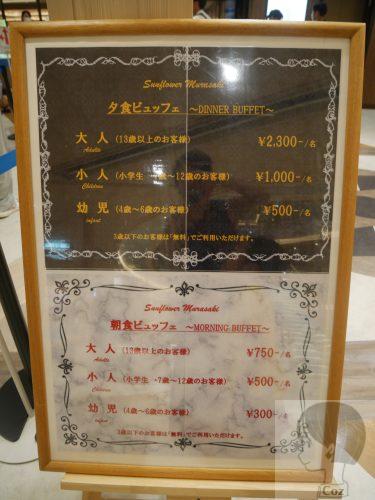 Sunflower Murasaki
夕食ビュッフェ ～DINNER BUFFET～
大人 (13歳以上のお客様) ¥2,300-/名
Adults
小人 (小学生 7歳～12歳のお客様) ¥1,000-/名
Children
幼児 (4歳～6歳のお客様) ¥500-/名
infant
3歳以下のお客様は「無料」でご利用いただけます。
Sunflower Murasaki
朝食ビュッフェ ～MORNING BUFFET～
大人 (13歳以上のお客様) ¥750-/名
Adults
小人 (小学生 7歳～12歳のお客様) ¥500-/名
Children
幼児 (4歳～6歳のお客様) ¥300-/名
infant
3歳以下のお客様は「無料」でご利用いただけます。
Coz